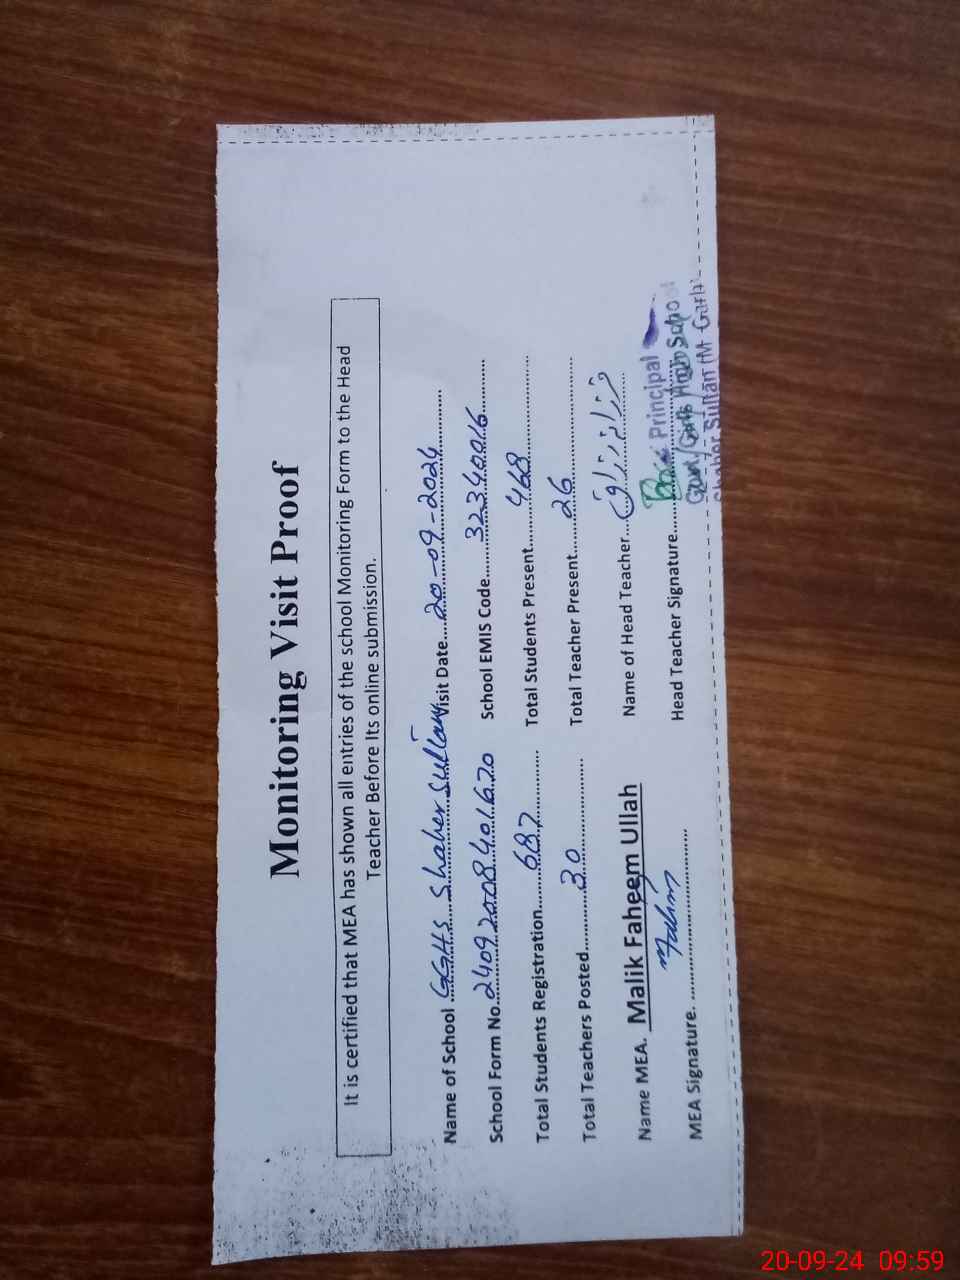 Monitoring Visit Proof
It is certified that MEA has shown all entries of the school Monitoring Form to the Head
Teacher Before Its online submission.
Name of School GGHS Shaher Sultan Visit Date 20-09-2024
School Form No. 24092008401620 School EMIS Code 32340016
Total Students Registration 687 Total Students Present 468
Total Teachers Posted 30 Total Teacher Present 26
Name MEA. Malik Faheem Ullah Name of Head Teacher
MEA Signature. Head Teacher Signature
Principal
Govt/Girls High School
Shaher Sultan (M Garh)
20-09-24 09:59